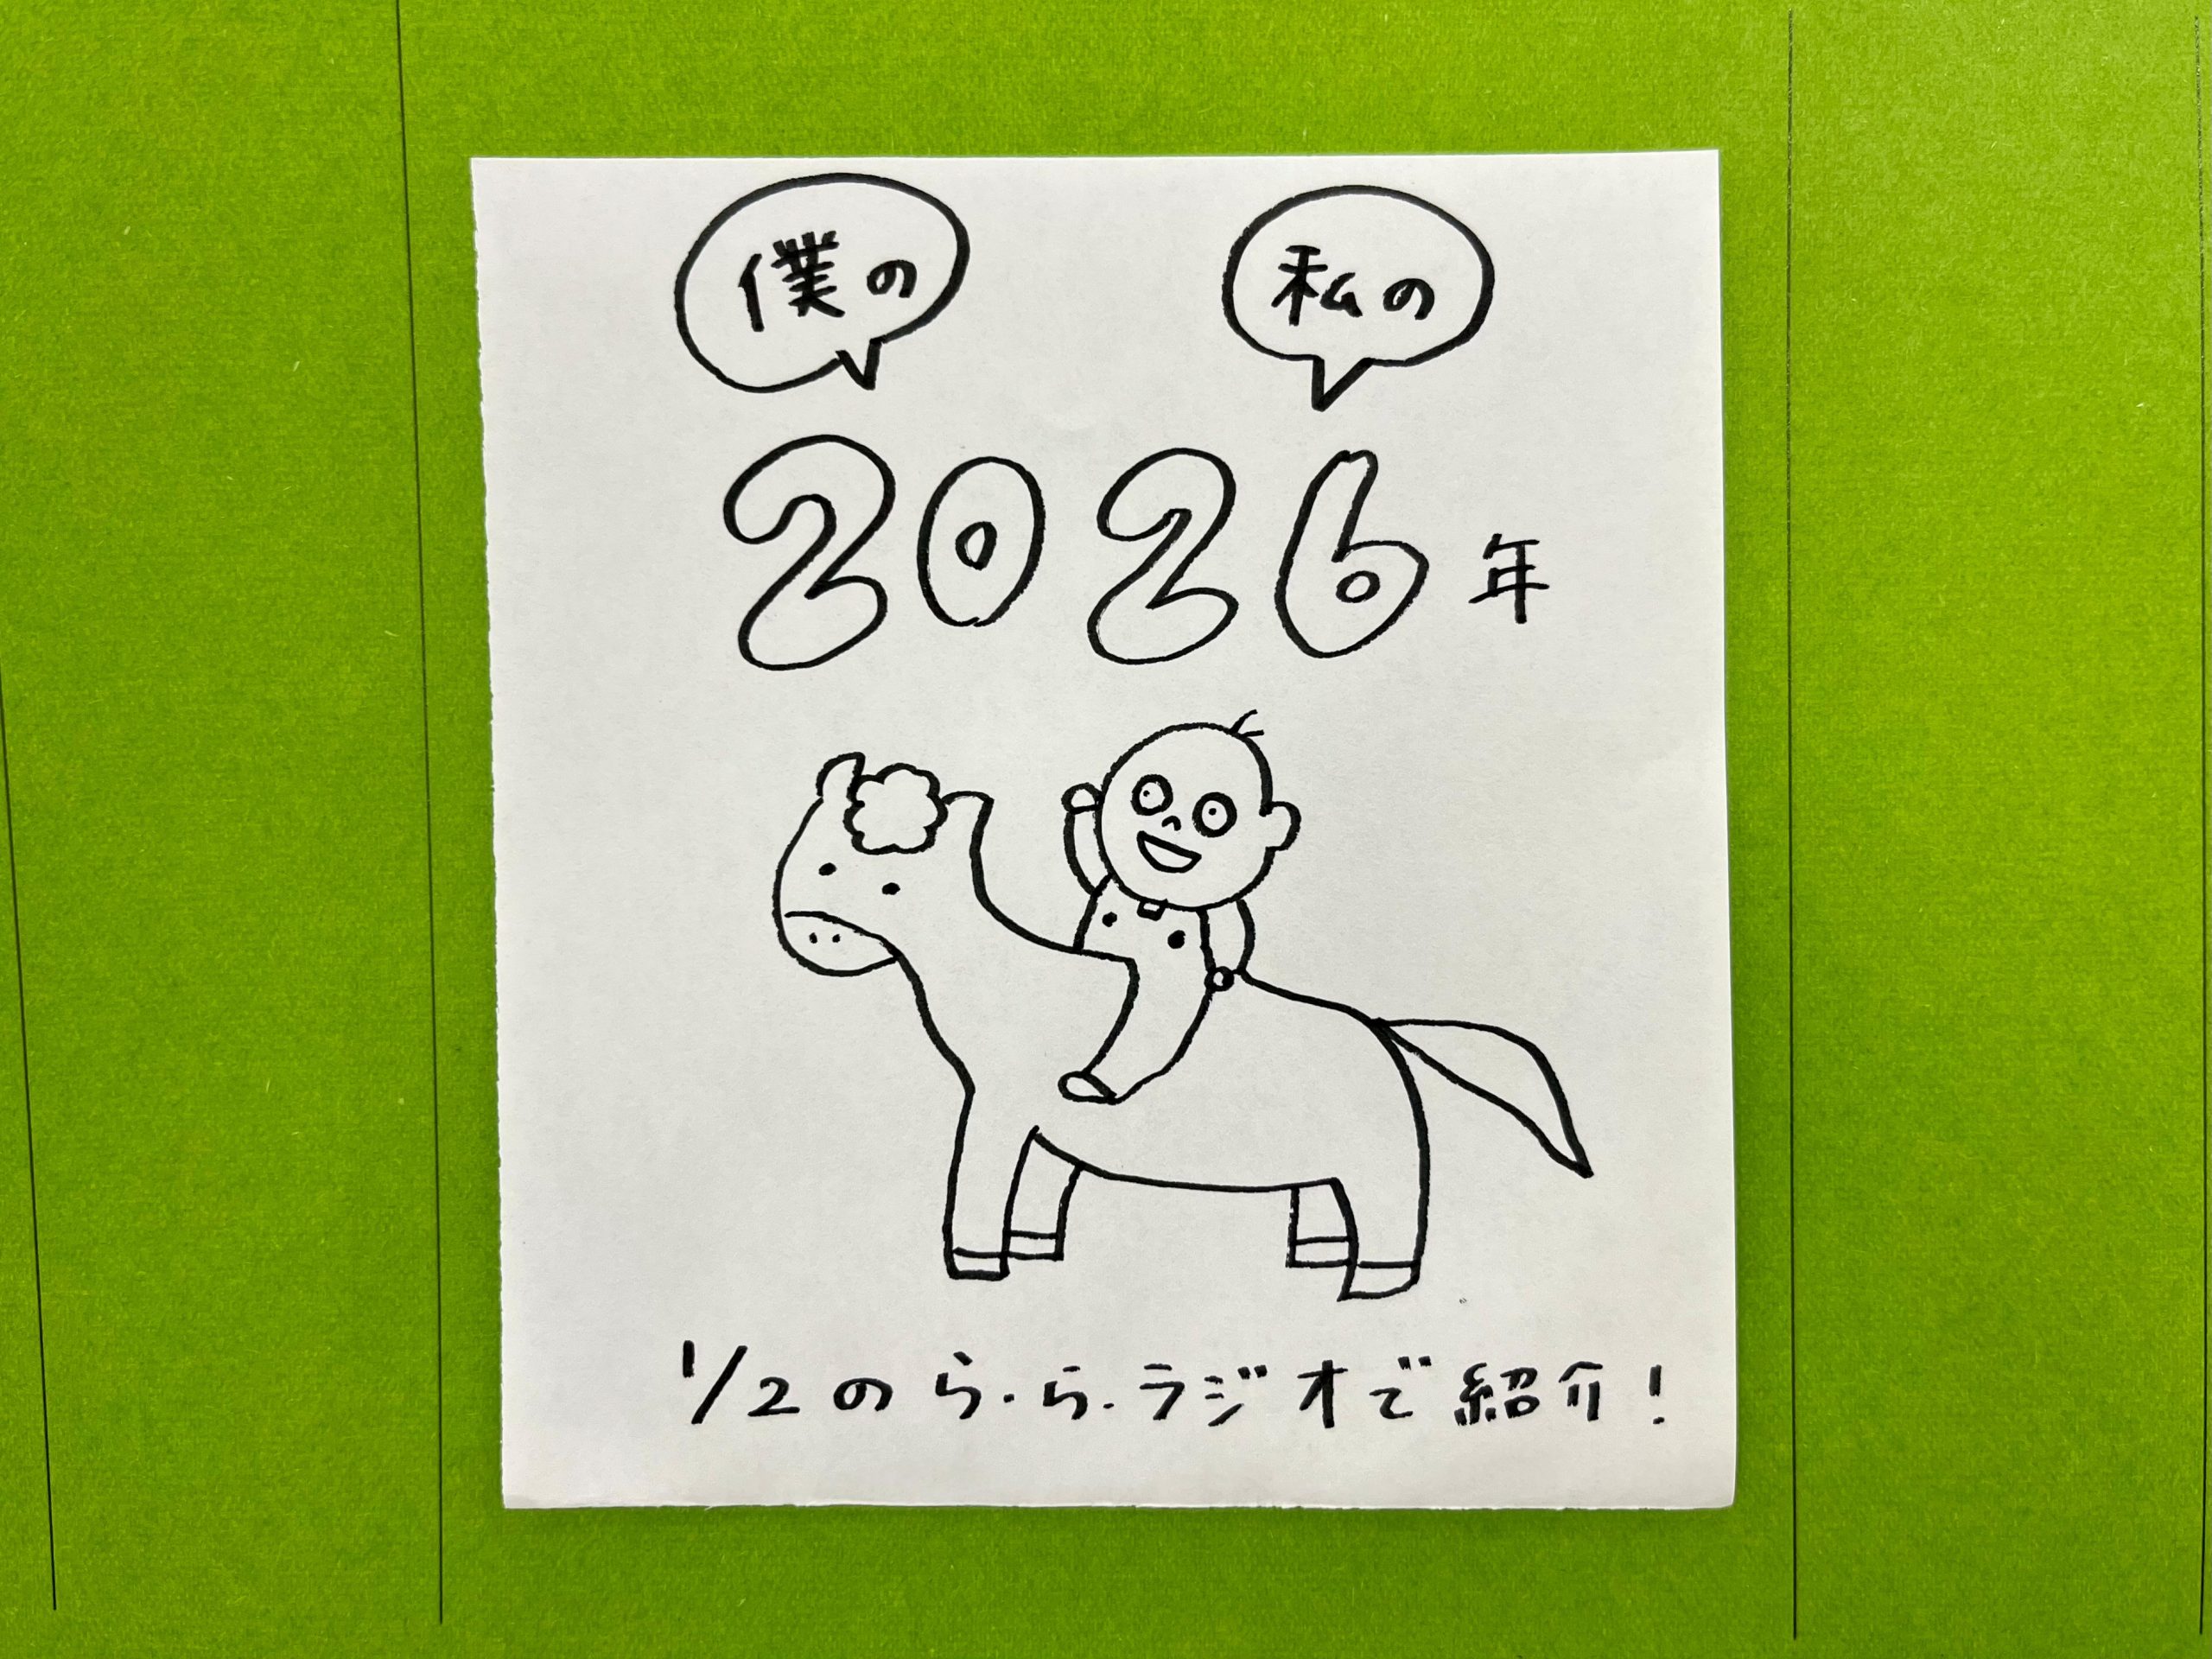 僕の 私の
2026年
1/2のら・ら・ラジオで紹介!